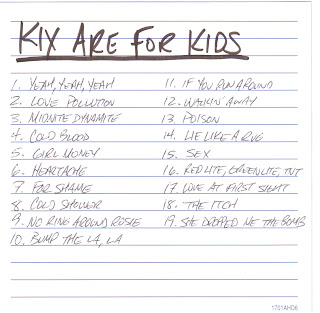 KIX ARE FOR KIDS
1. YEAH, YEAH, YEAH
2. LOVE POLLUTION
3. MIDNITE DYNAMITE
4. COLD BLOOD
5. GIRL MONEY
6. HEARTACHE
7. FOR SHAME
8. COLD SHOWER
9. NO RING AROUND ROSIE
10. BUMP THE LA, LA
11. IF YOU RUN AROUND
12. WALKIN' AWAY
13. POISON
14. LIE LIKE A RUG
15. SEX
16. RED LITE, GREEN LITE, TNT
17. LOVE AT FIRST SIGHT
18. THE ITCH
19. SHE DROPPED ME THE BOMB
1701AHD6